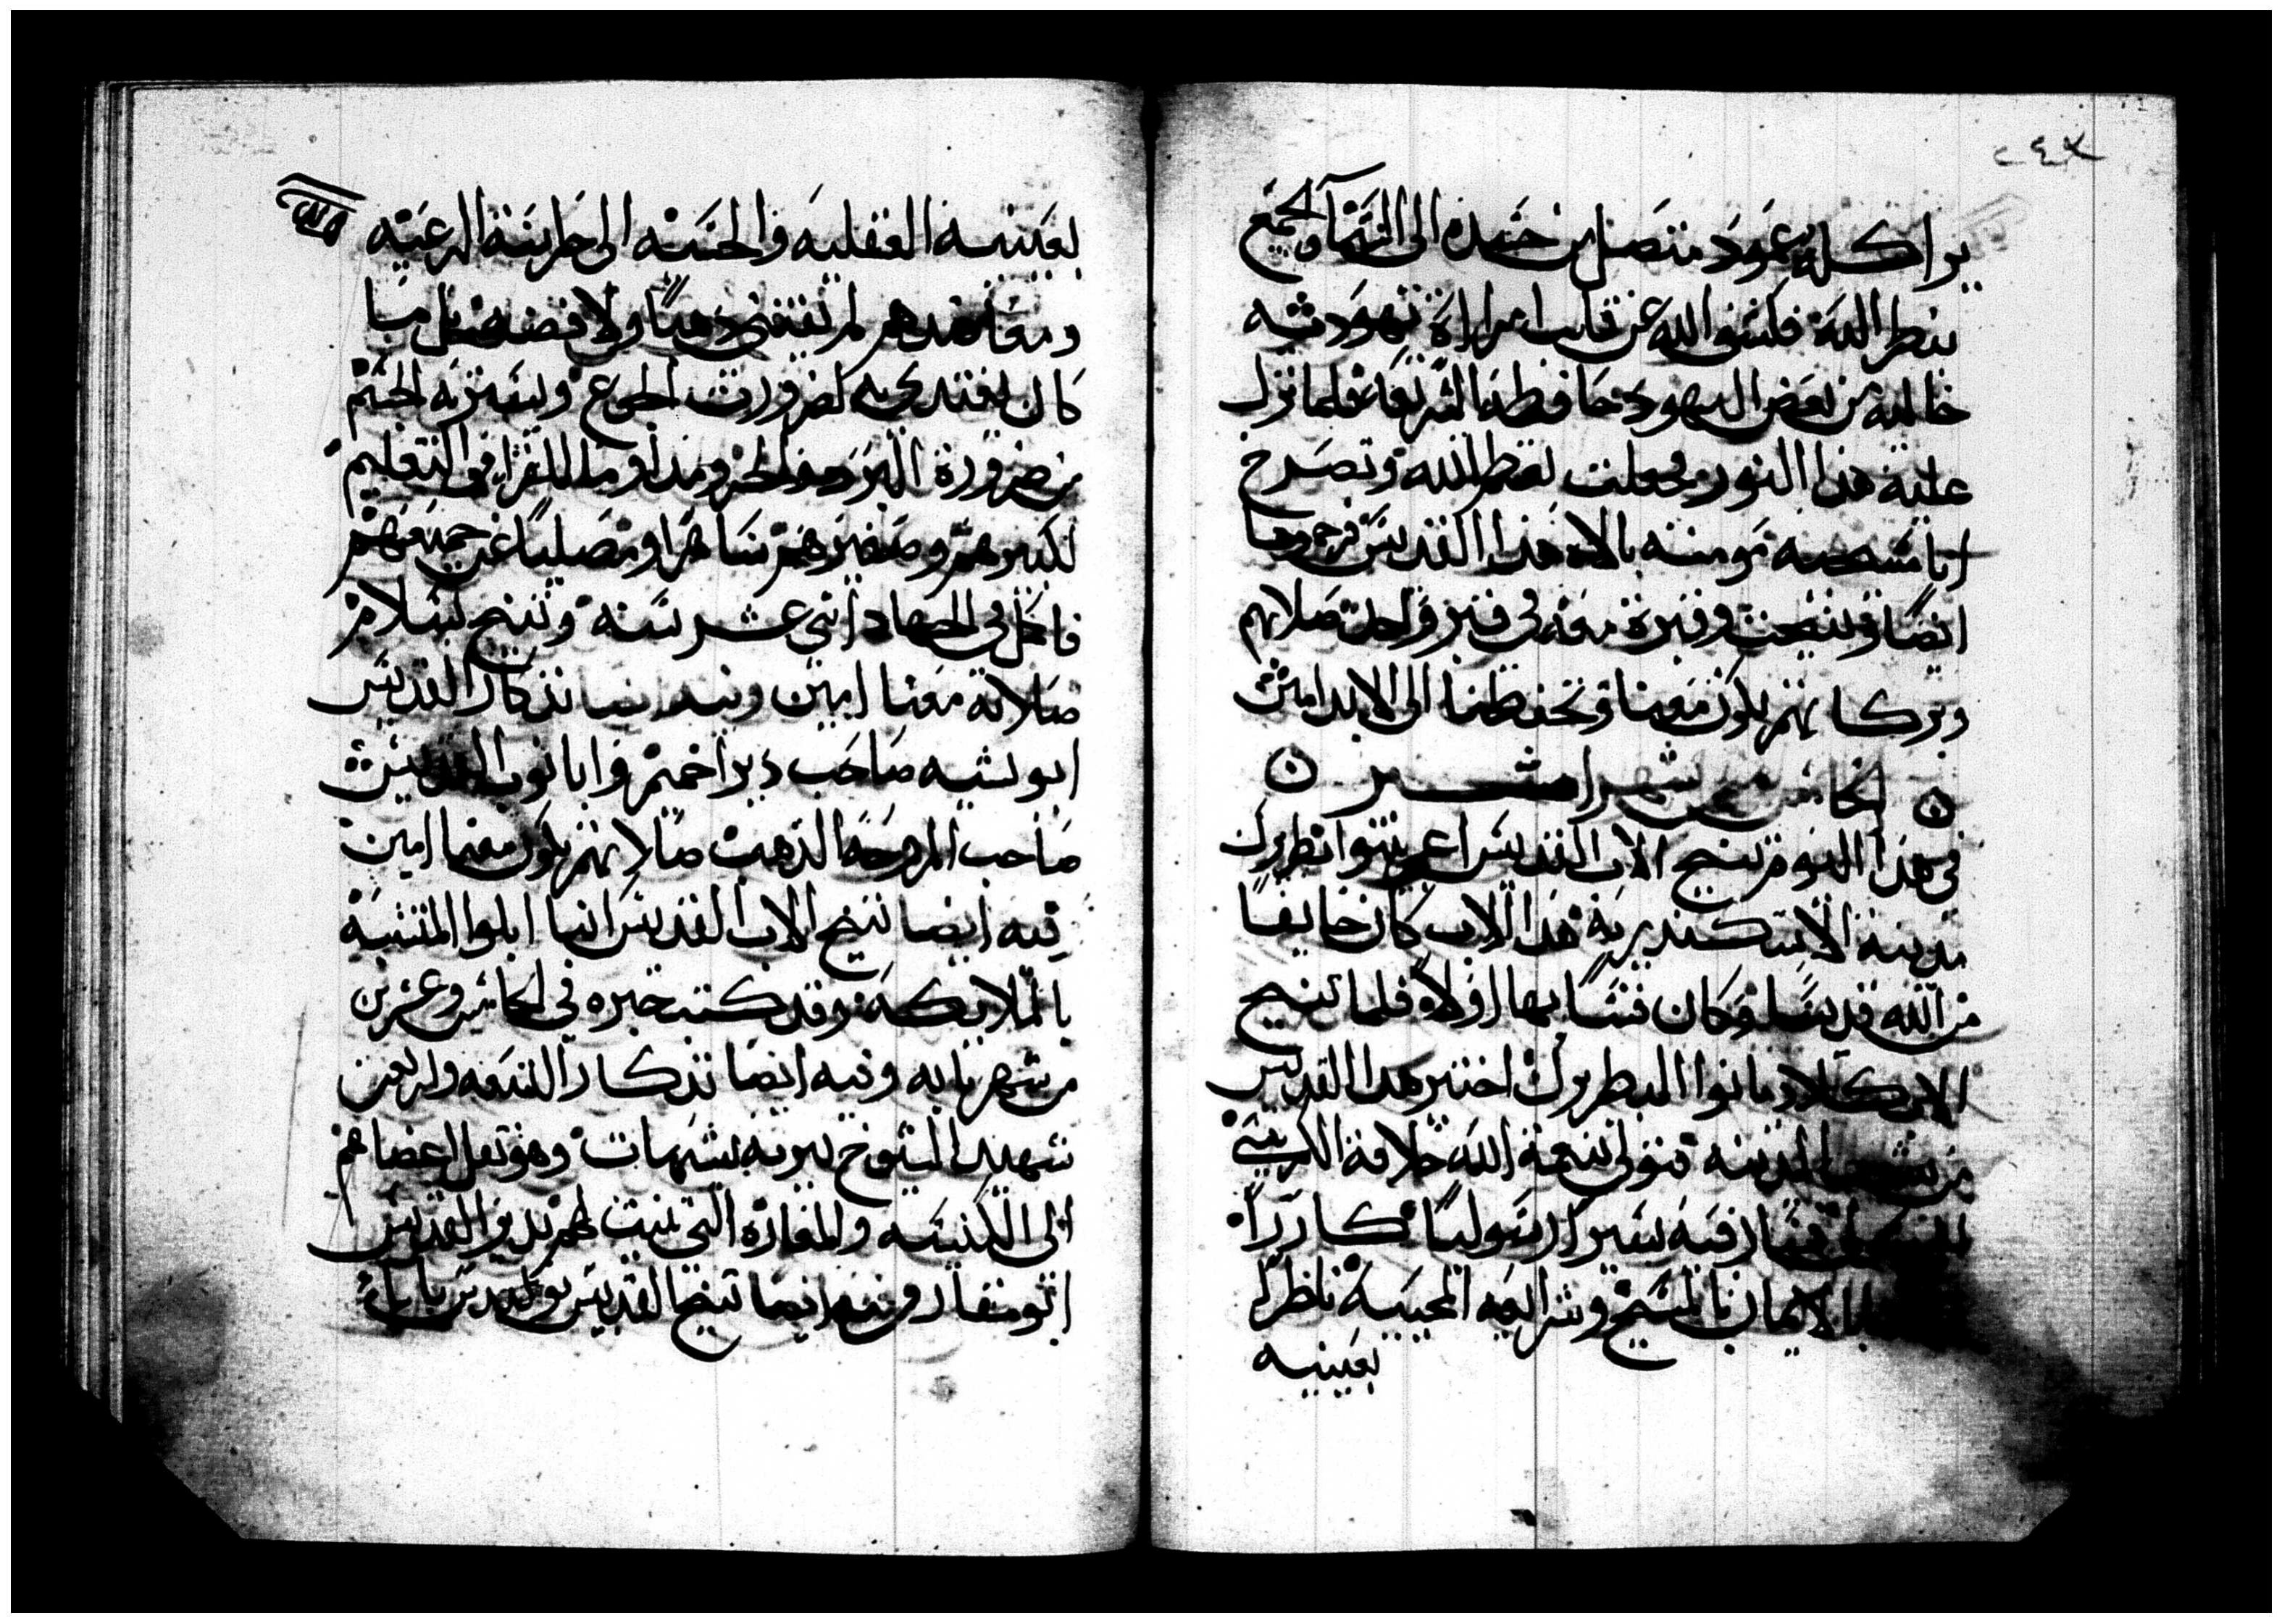 ٢٤٧
يراكله بعمود متصل من جسده الى السما والجمع
ينظر اليه فكشف الله عن قلب امراة يهوديه
خاليه من بعض اليهود حافظة الشريعة فلما نزل
عليه هذا النور وجعلت تعظم الله وتصرخ
انا مسيحيه مومنه بالاه هذا القديس فرجموها
ايضا وتنيحت وقبرة معه في قبر واحد صلاتهم
وبركاتهم تكون معنا وتحفظنا الى الابد امين
الخامس من شهر امشير
في هذا اليوم تنيح الاب القديس اغربينوا بطريرك
مدينة الاسكندرية هذا الاب كان خايفا
من الله قديسا وكان قسا بها اولا فلما تنيح
الاب كلاودمانوا البطريرك اختير هذا القديس
من شعب المدينه فتولى بنعمة الله خلافة الكرسي
فسار فيه سيرا رسوليا كارزا
بالايمان بالمسيح وشرايعه المحييه ناظرا
بعينيه
بعينيه العقليه والحسيه الى حراسة الرعيه
ومقاصدهم لم يقتني ذهبا ولا فضه بل ما
كان يقتدي به لضرورت الجوع ويستر به الجسم
من ضرورة البرد والحر ومداوما للقراه في التعليم
لكبيرهم وصغيرهم ساهرا ومصليا عن جميعهم
فاكمل في الجهاد اثني عشر سنه وتنيح بسلام
صلاته معنا امين وفيه ايضا تذكار القديس
ابو بشيه صاحب دير اخميم وابا نوب القديس
صاحب المروحة الذهب صلاتهم تكون معنا امين
فيه ايضا تنيح الاب القديس انبا ابلوا المتشبه
بالملايكه وقد كتب خبره في الخامس وعشرين
من شهر بابه وفيه ايضا تذكار التسعه واربعين
شهيد الشيوخ ببرية شيهات وهو نقل اعضاهم
الى الكنيسه والمغاره التي بنيت لهم بدير القديس
ابو مقار وفيه ايضا تنيح القديس